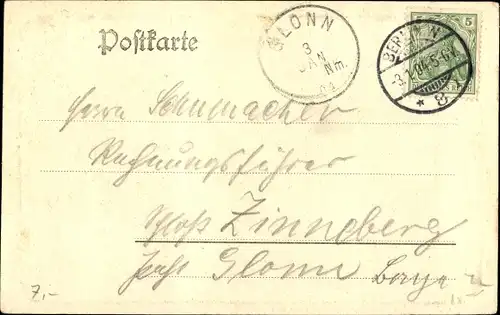 Postkarte
GLONN
3
JAN
Nm.
04
5
5
BERLIN N
-3.1.04.5-6N.
* 8
Herrn Schumacher
Rechnungsführer
Schloß Zinneberg
Glonn
7,-